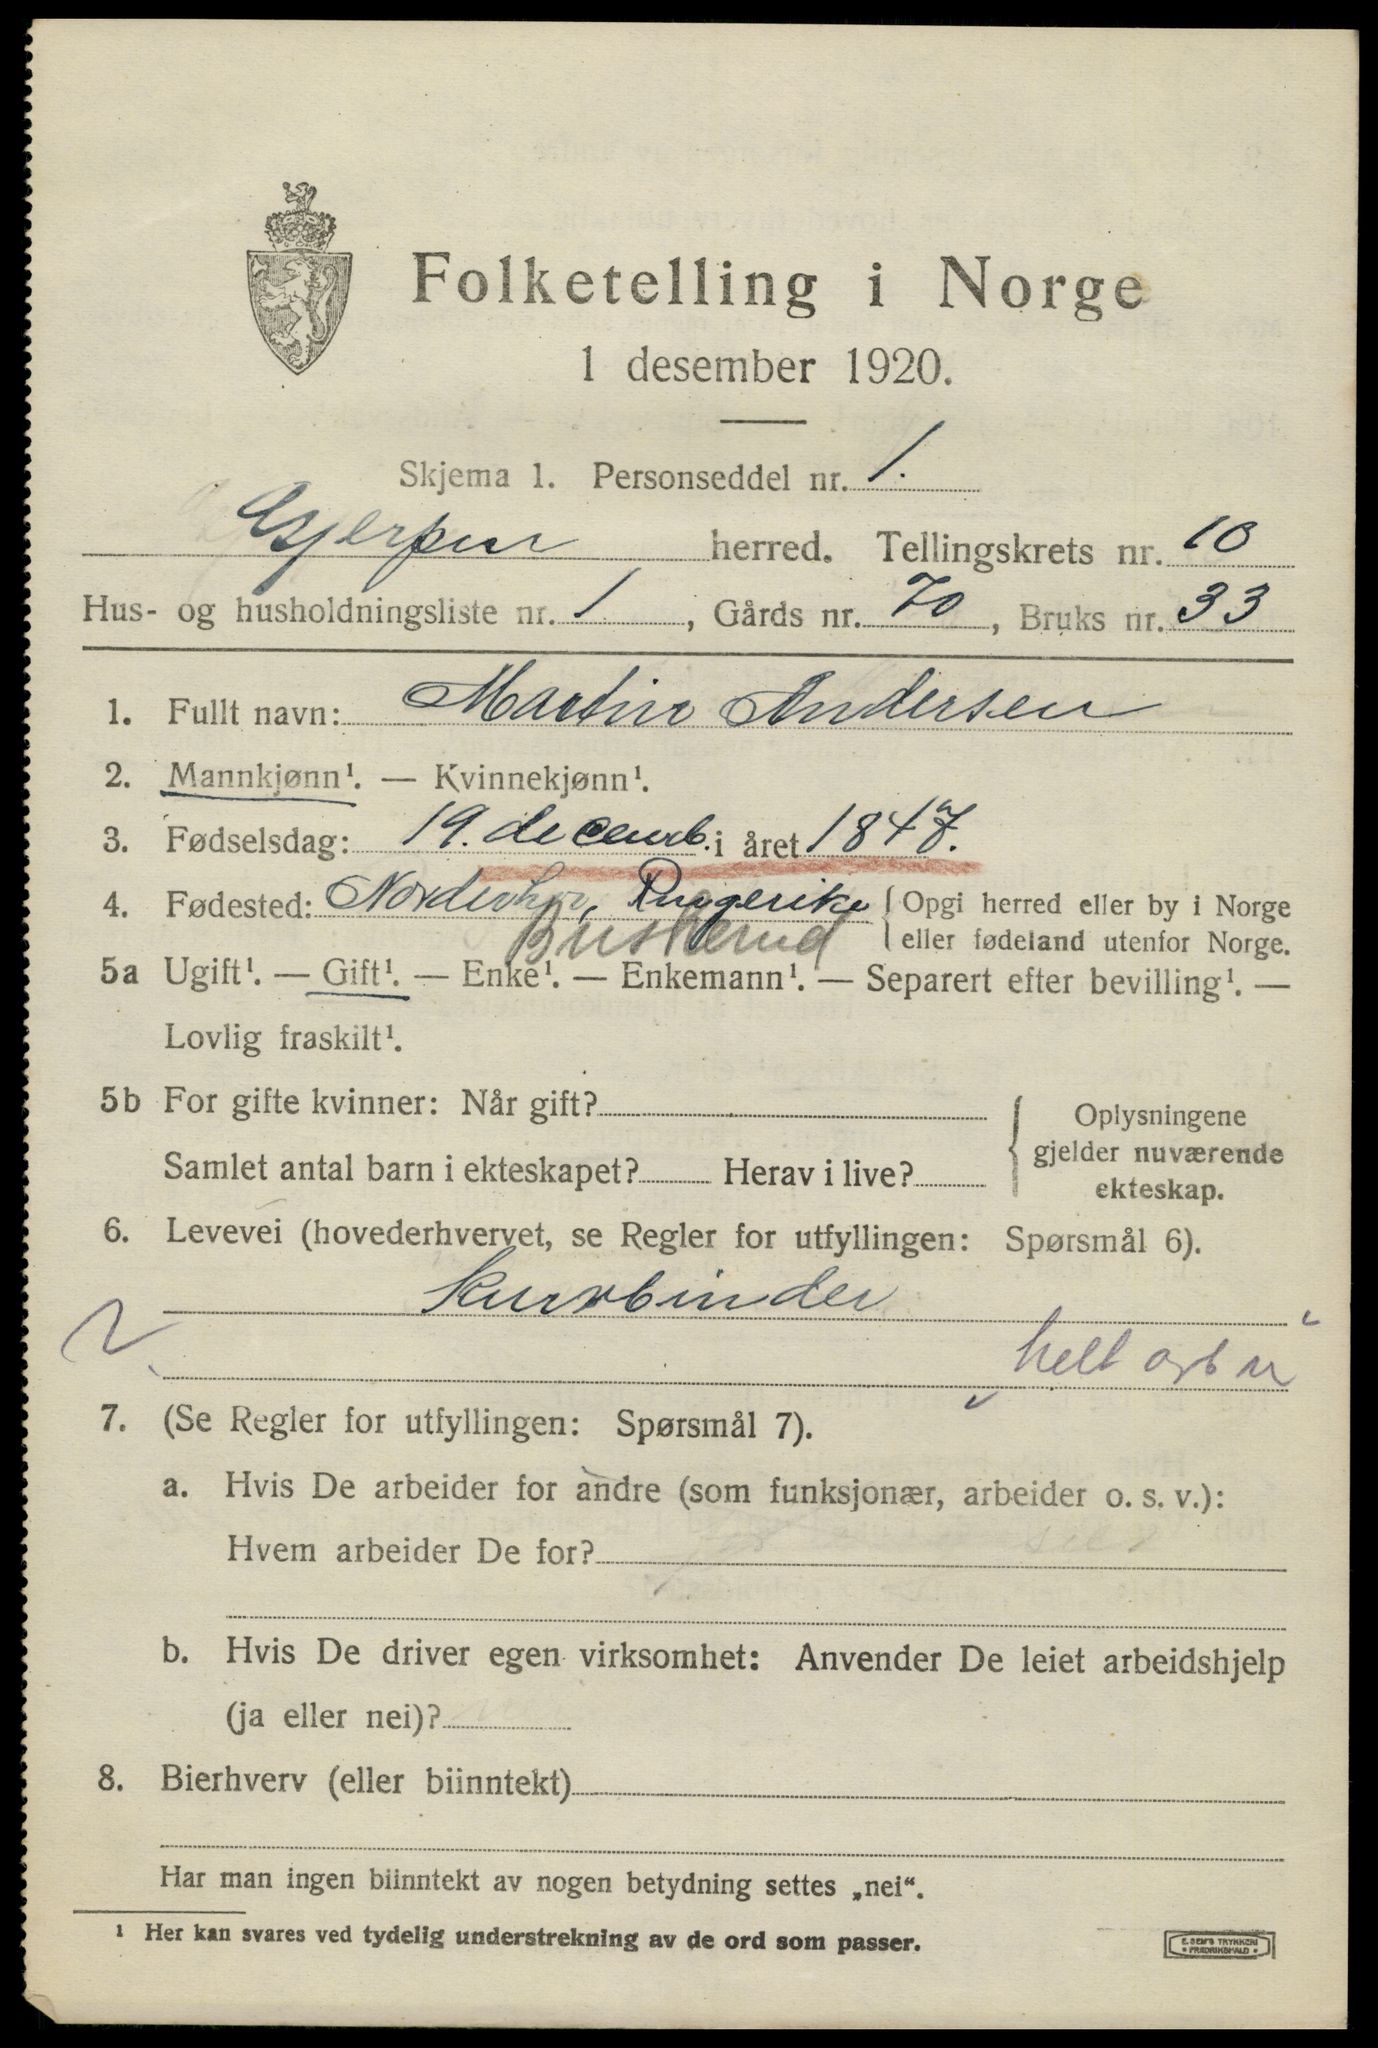 Folketelling i Norge
1 desember 1920.
Skjema 1. Personseddel nr. 1.
Gjerpen herred. Tellingskrets nr. 10
Hus- og husholdningsliste nr. 1, Gårds nr. 70, Bruks nr. 33
1. Fullt navn: Martin Andersen
2. Mannkjønn¹. — Kvinnekjønn¹.
3. Fødselsdag: 19. decemb. i året 1847.
4. Fødested: Norderhov, Ringerike { Opgi herred eller by i Norge
Buskerud eller fødeland utenfor Norge.
5a Ugift¹. — Gift¹. — Enke¹. — Enkemann¹. — Separert efter bevilling¹. —
Lovlig fraskilt¹.
5b For gifte kvinner: Når gift? { Oplysningene
gjelder nuværende
Samlet antal barn i ekteskapet? Herav i live?
ekteskap.
6. Levevei (hovederhvervet, se Regler for utfyllingen: Spørsmål 6).
Kurvbinder
helt
7. (Se Regler for utfyllingen: Spørsmål 7).
a. Hvis De arbeider for andre (som funksjonær, arbeider o. s. v.):
Hvem arbeider De for?
b. Hvis De driver egen virksomhet: Anvender De leiet arbeidshjelp
(ja eller nei)?
8. Bierhverv (eller biinntekt)
Har man ingen biinntekt av nogen betydning settes „nei“.
¹ Her kan svares ved tydelig understrekning av de ord som passer.
E. SEM'S TRYKKERI
• FREDRIKSHALD •